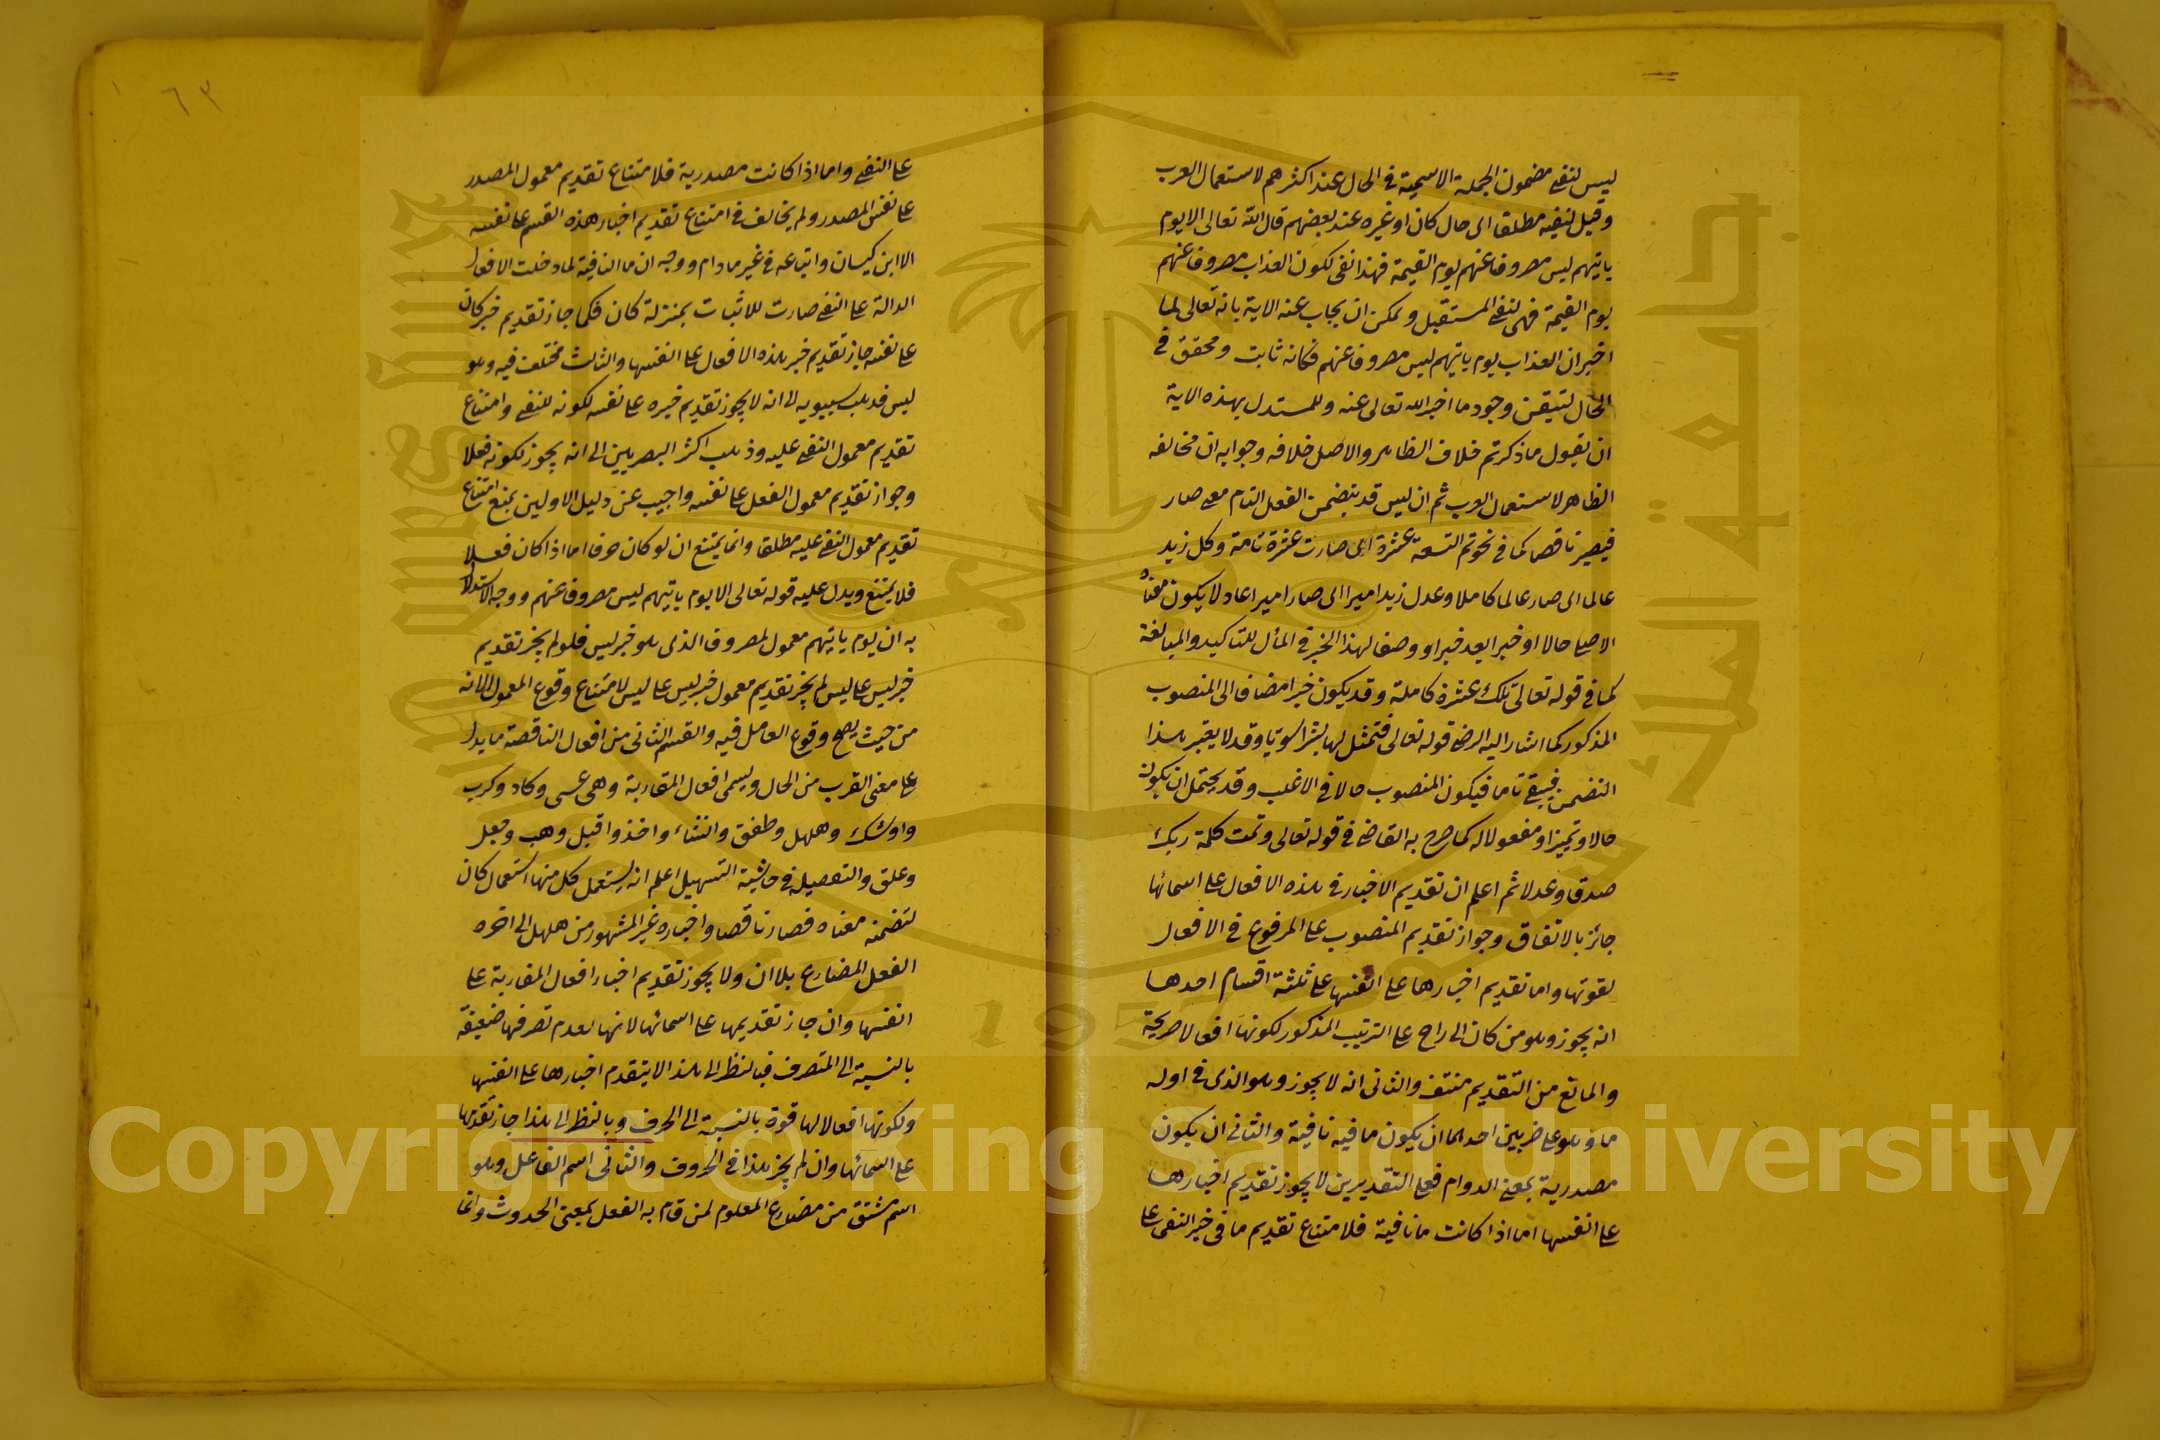 ليس لنفى مضمون الجملة الاسمية فى الحال عند اكثرهم لاستعمال العرب
وقيل لنفيه مطلقا اى حال كان او غيره عند بعضهم قال الله تعالى الا يوم
ياتيهم ليس مصروفا عنهم يوم القيمة فهذا نفى لكون العذاب مصروفا عنهم
يوم القيمة فهى لنفى المستقبل ويمكن ان يجاب عنه الاية بانه تعالى لما
اخبر ان العذاب يوم ياتيهم ليس مصروفا عنهم فكانه ثابت ومحقق فى
الحال لتيقن وجود ما اخبر الله تعالى عنه وللمستدل بهذه الاية
ان يقول ما ذكرتم خلاف الظاهر والاصل خلافه وجوابه ان مخالفه
الظاهر لاستعمال العرب ثم ان ليس قد يتضمن الفعل التام معنى صار
فيصير ناقصا كما فى نحو تم التسعة عشرة اى صارت عشرة تامة وكل زيد
عالما اى صار عالما كاملا وعدل زيد اميرا اى صار اميرا عادلا يكون معناه
الاصلى حالا او خبرا بعد خبر او وصفا لهذا الخبر فى المأل للتاكيد والمبالغة
كما فى قوله تعالى تلك عشرة كاملة وقد يكون خبرا مضافا الى المنصوب
المذكور كما اشار اليه الرضى قوله تعالى فتمثل لها بشرا سويا وقد لا يعتبر هذا
التضمن فيبقى تاما فيكون المنصوب حالا فى الاغلب وقد يحتمل ان يكون
حالا وتميزا ومفعولا له كما صرح به القاضى فى قوله تعالى وتمت كلمة ربك
صدقا وعدلا ثم اعلم ان تقديم الاخبار فى هذه الافعال على اسمائها
جائز بالاتفاق وجواز تقديم المنصوب على المرفوع فى الافعال
لقوتها واما تقديم اخبارها على انفسها على ثلثة اقسام احدها
انه يجوز وهو من كان الى راح على الترتيب المذكور لكونها افعالا صريحة
والمانع من التقديم منتف والثانى انه لا يجوز وهو الذى فى اوله
ما وهو على ضربين احدهما ان يكون ما فيه نافية والثانى ان يكون
مصدرية بمعنى الدوام فعلى التقديرين لا يجوز تقديم اخبارها
على انفسها اما اذا كانت ما نافية فلامتناع تقديم ما فى خبر النفى على
٦٣
على النفى واما اذا كانت مصدرية فلامتناع تقديم معمول المصدر
على نفس المصدر ولم يخالف فى امتناع تقديم اخبار هذه القسم على نفسه
الا ابن كيسان واتباعه فى غير مادام ووجه ان ما النافية لما دخلت الافعال
الدالة على النفى صارت للاثبات بمنزلة كان فكما جاز تقديم خبر كان
على نفسه جاز تقديم خبر هذه الافعال على انفسها والثالث مختلف فيه وهو
ليس فذهب سيبويه الى انه لا يجوز تقديم خبره على نفسه لكونه للنفى وامتناع
تقديم معمول النفى عليه وذهب اكثر البصريين الى انه يجوز لكونه فعلا
وجواز تقديم معمول الفعل على نفسه واجيب عن دليل الاولين بمنع امتناع
تقديم معمول النفى عليه مطلقا وانما يمتنع ان لو كان حرفا اما اذا كان فعلا
فلا يمتنع ويدل عليه قوله تعالى الا يوم ياتيهم ليس مصروفا عنهم ووجه الاستدلال
به ان يوم ياتيهم معمول لمصروفا الذى هو خبر ليس فلو لم يجز تقديم
خبر ليس على ليس لم يجز تقديم معمول خبر ليس على ليس لامتناع وقوع المعمول الا انه
من حيث يصح وقوع العامل فيه والقسم الثانى من افعال الناقصة ما يدل
على معنى القرب من الحال ويسمى افعال المقاربة وهى عسى وكاد وكرب
واوشك وهلهل وطفق وانشاء واخذ واقبل وهب وجعل
وعلق والتفصيل فى حاشية التسهيل اعلم انه يستعمل كل منها استعمال كان
لتضمنه معناه فصار ناقصا واخباره غير المشهور من هلهل الى اخره
الفعل المضارع بلا ان ولا يجوز تقديم اخبار افعال المقاربة على
انفسها وان جاز تقديمها على اسمائها لانها لعدم تصرفها ضعيفة
بالنسبة الى المتصرف فبالنظر الى هذا لا يتقدم اخبارها على انفسها
ولكونها افعالا لها قوة بالنسبة الى الحرف وبالنظر الى هذا جاز تقديمها
على اسمائها وان لم يجز هذا فى الحروف والثانى اسم الفاعل وهو
اسم مشتق من مضارع المعلوم لمن قام به الفعل بمعنى الحدوث وانما
Copyright © King Saud University
1957